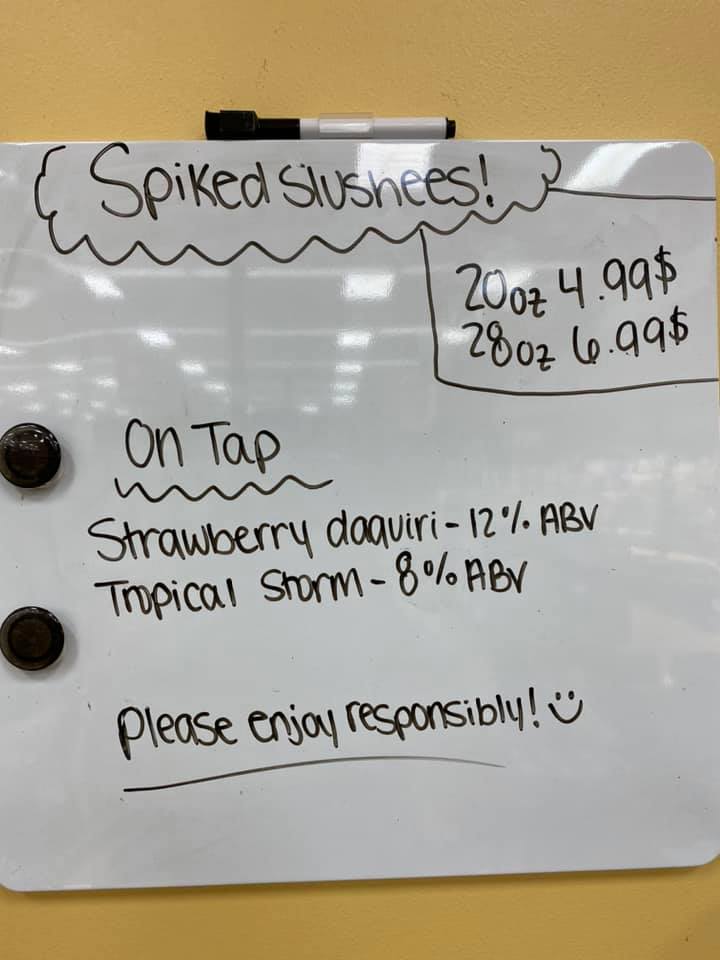 Spiked Slushees!
20oz 4.99$
28oz 6.99$
On Tap
Strawberry daquiri - 12% ABV
Tropical Storm - 8% ABV
Please enjoy responsibly! :)